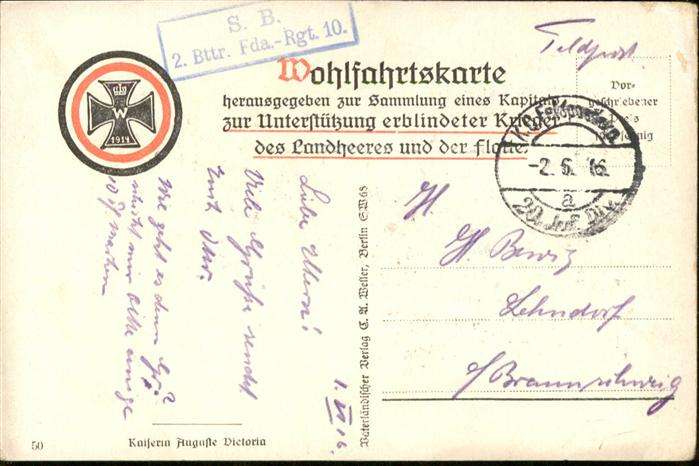 S. B.
2. Bttr. Fda.-Rgt. 10.
Feldpost
Wohlfahrtskarte
herausgegeben zur Sammlung eines Kapitals
zur Unterstützung erblindeter Krieger
des Landheeres und der Flotte.
Vor-
geschriebener
W
1914
-2. 6. 16
a
20. Inf. Div.
1. VI 16.
Liebe Eltern!
Viele Grüße sendet
Euch Otto.
Wie geht es denn
schickt mir bitte einige
H.
H.
Lehndorf
b/Braunschweig
Vaterländischer Verlag C. A. Weller, Berlin SW 68
50
Kaiserin Auguste Victoria